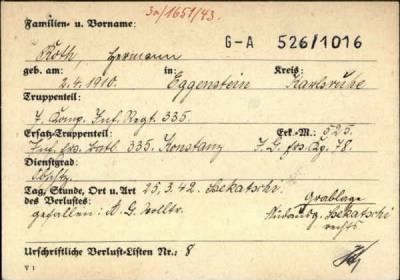 3a/1651/43.
Familien- u. Vorname:
Roth, Hermann
G-A 526/1016
geb. am: in: Kreis:
2.4.1910. Eggenstein Karlsruhe
Truppenteil:
7. Komp. Inf. Regt. 335.
Ersatz-Truppenteil: Erk.-M.: 525.
Inf. Ers. Batl. 335. Konstanz J. G. Ers. Kp. 78.
Dienstgrad:
Obschtz.
Tag, Stunde, Ort u. Art 25.3.42. Bekatschi Grablage
des Verlustes:
gefallen: A. G. Volltr. Bekatschi
rechts
Urschriftliche Verlust-Listen Nr.: 8
V 1